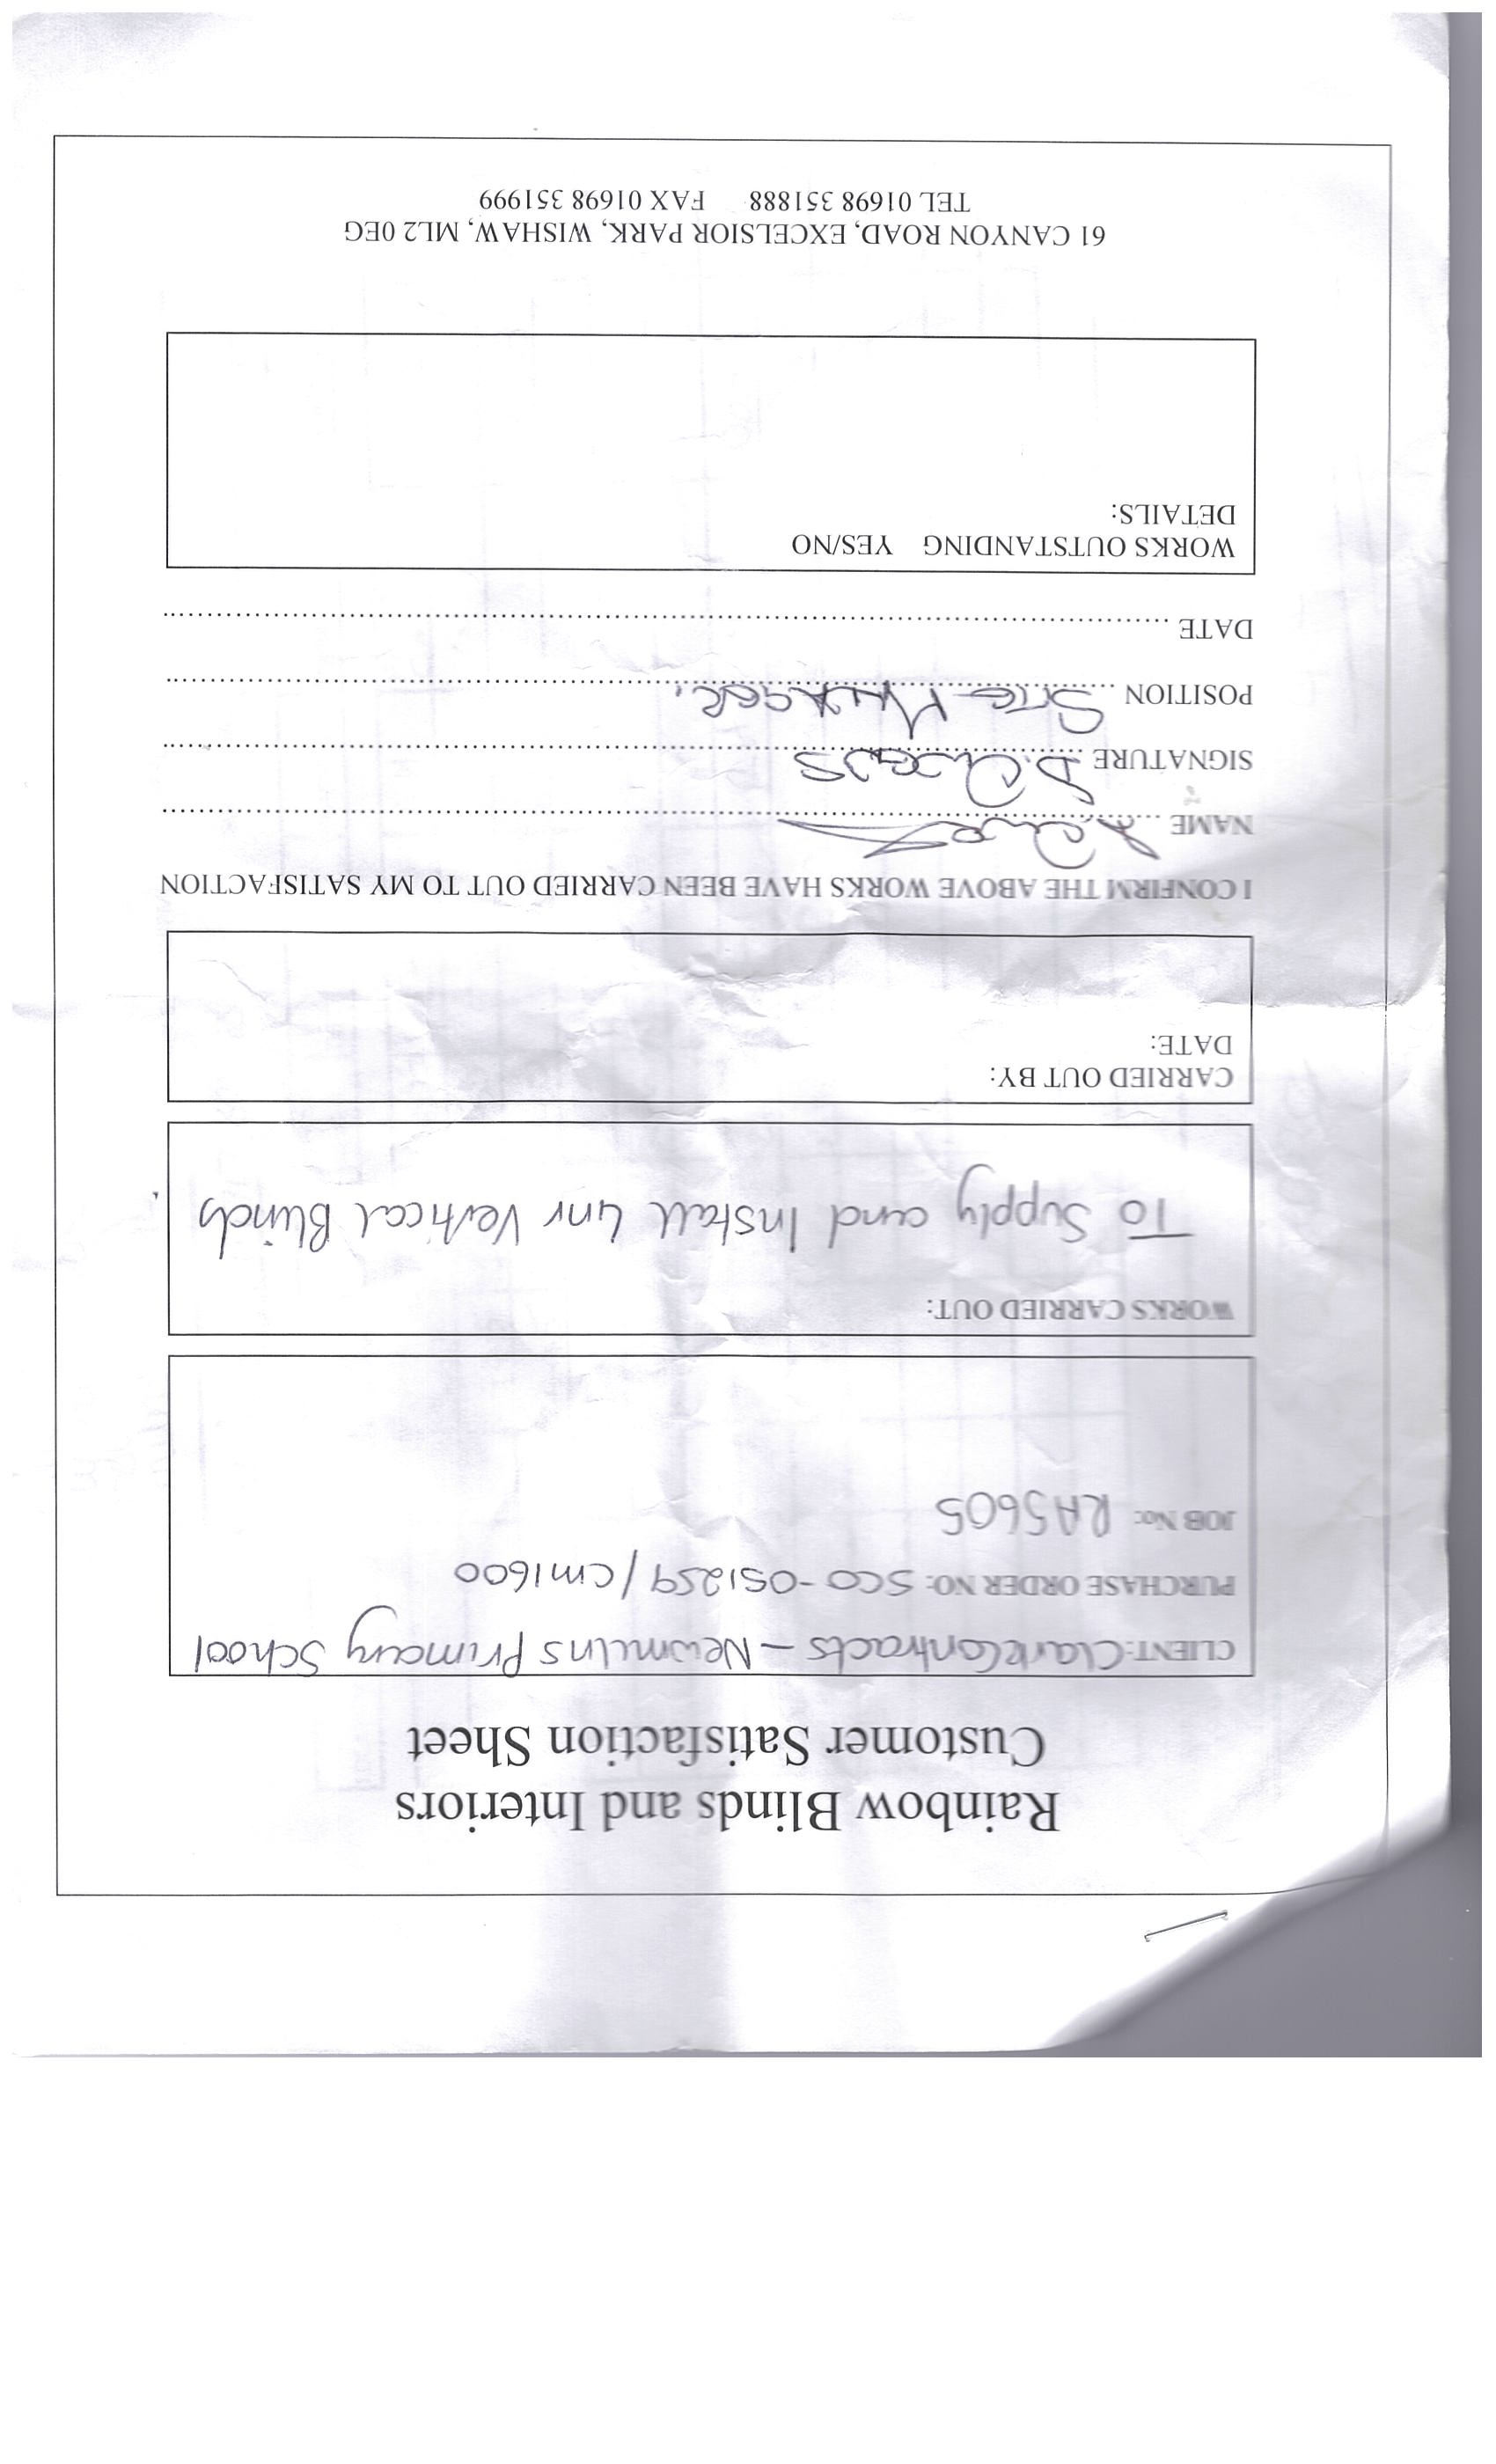 Rainbow Blinds and Interiors
Customer Satisfaction Sheet
CLIENT: Clark Contracts – Newmilns Primary School
PURCHASE ORDER NO: SCO-051259/CM1600
JOB No: RA5605
WORKS CARRIED OUT:
To Supply and Install 4nr Vertical Blinds
CARRIED OUT BY:
DATE:
I CONFIRM THE ABOVE WORKS HAVE BEEN CARRIED OUT TO MY SATISFACTION
NAME
SIGNATURE D.
POSITION SITE MANAGER.
DATE
WORKS OUTSTANDING YES/NO
DETAILS:
61 CANYON ROAD, EXCELSIOR PARK, WISHAW, ML2 0EG
TEL 01698 351888 FAX 01698 351999